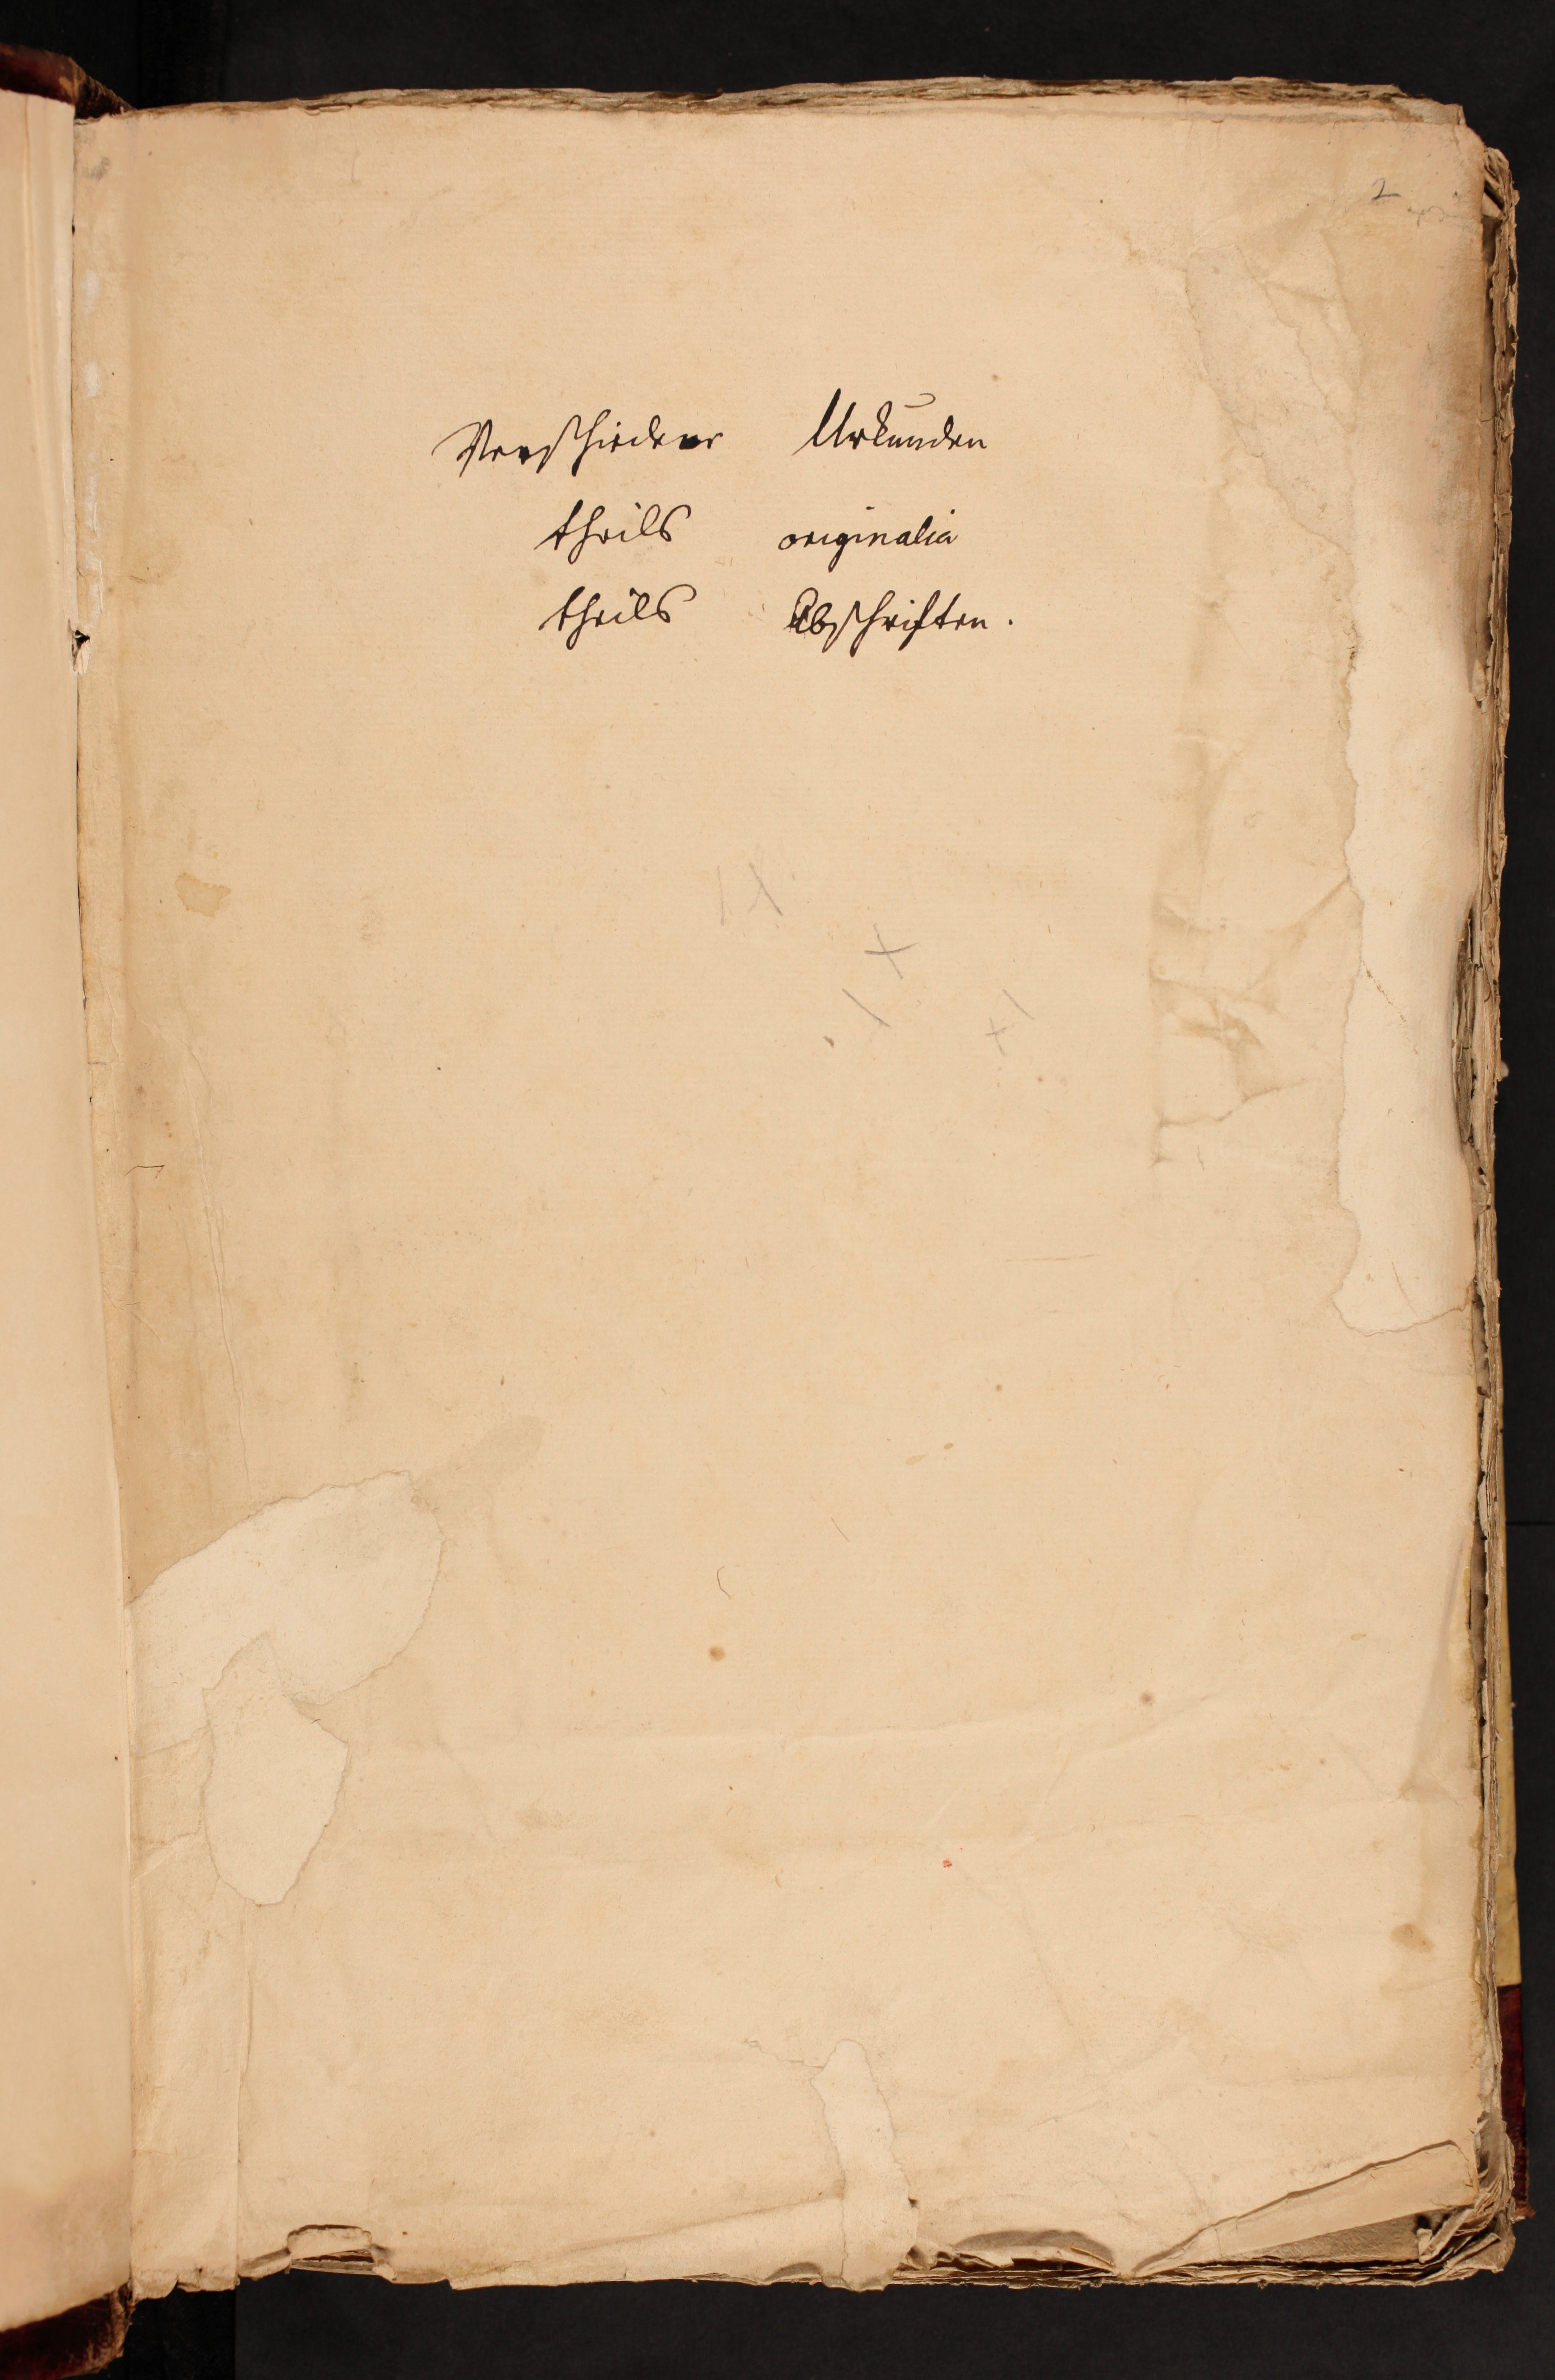 2
Verschiedene Urkunden
theils originalia
theils Abschriften.